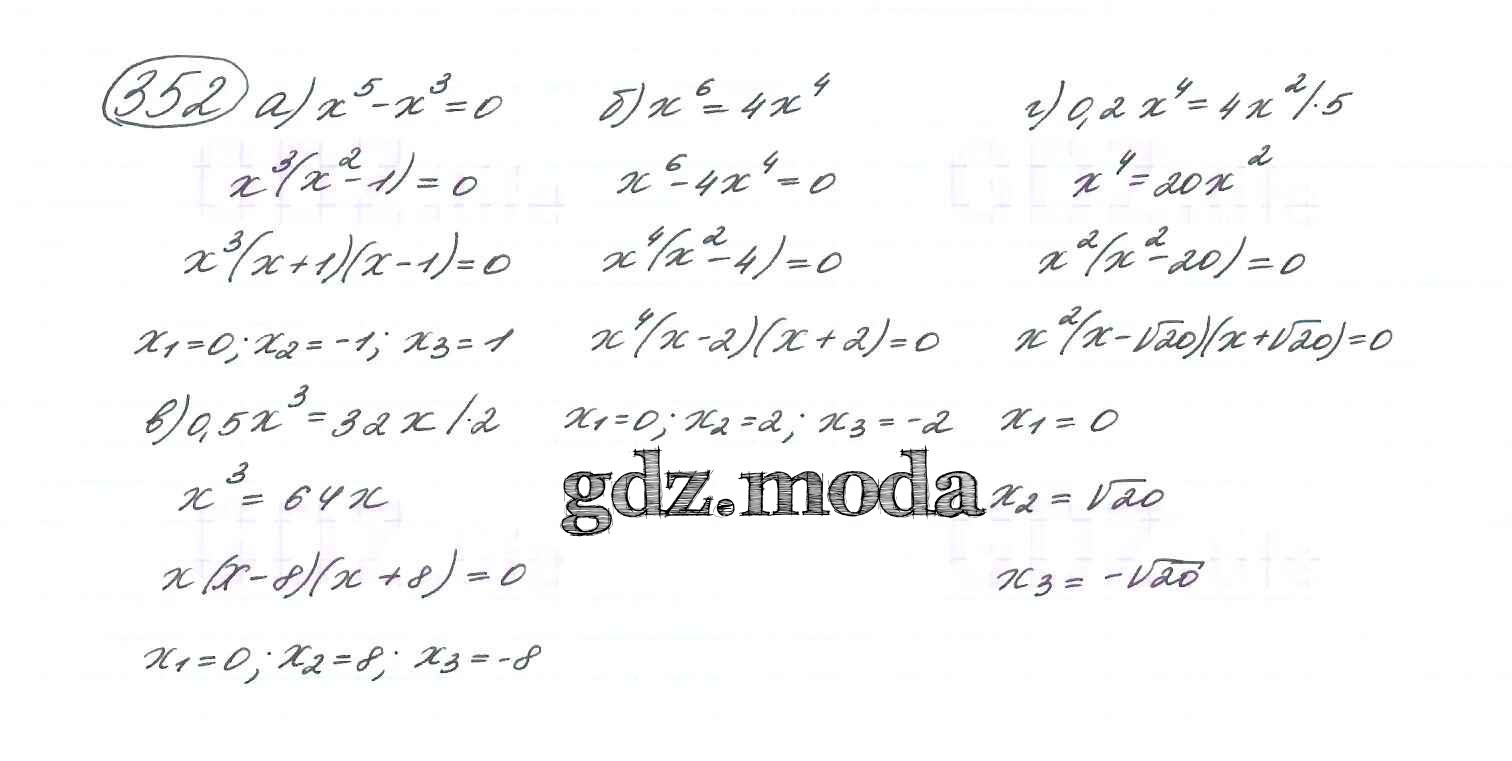 352 а) x⁵ - x³ = 0
x³(x² - 1) = 0
x³(x+1)(x-1) = 0
x₁=0; x₂=-1; x₃=1
в) 0,5x³ = 32x /·2
x³ = 64x
x(x-8)(x+8) = 0
x₁=0; x₂=8; x₃=-8
б) x⁶ = 4x⁴
x⁶ - 4x⁴ = 0
x⁴(x² - 4) = 0
x⁴(x-2)(x+2) = 0
x₁=0; x₂=2; x₃=-2
gdz.moda
г) 0,2x⁴ = 4x² /·5
x⁴ = 20x²
x²(x² - 20) = 0
x²(x-√20)(x+√20) = 0
x₁ = 0
x₂ = √20
x₃ = -√20